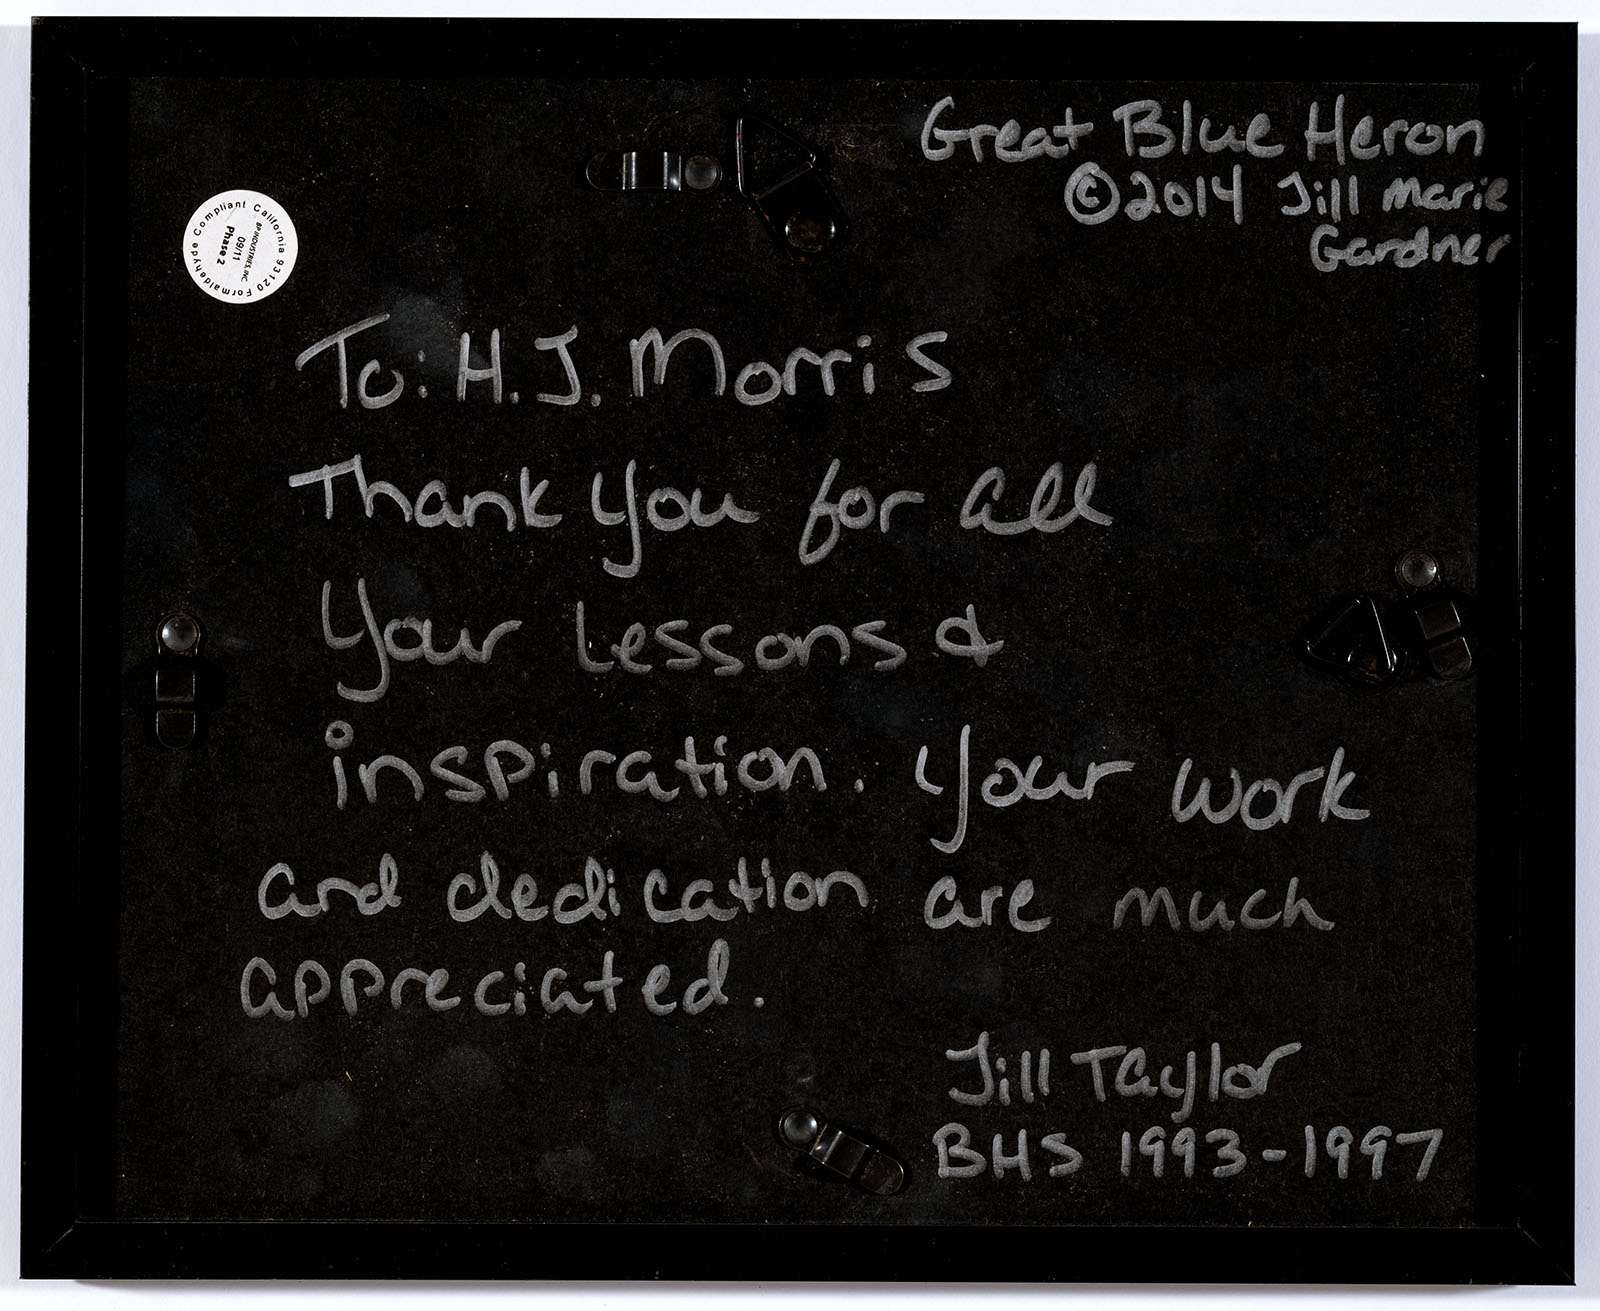 Great Blue Heron
©2014 Jill Marie
Gardner
California 93120 Formaldehyde Compliant
BP INDUSTRIES, INC.
09/11
Phase 2
To: H.J. Morris
Thank you for all
your Lessons &
inspiration. Your work
and dedication are much
appreciated.
Jill Taylor
BHS 1993-1997